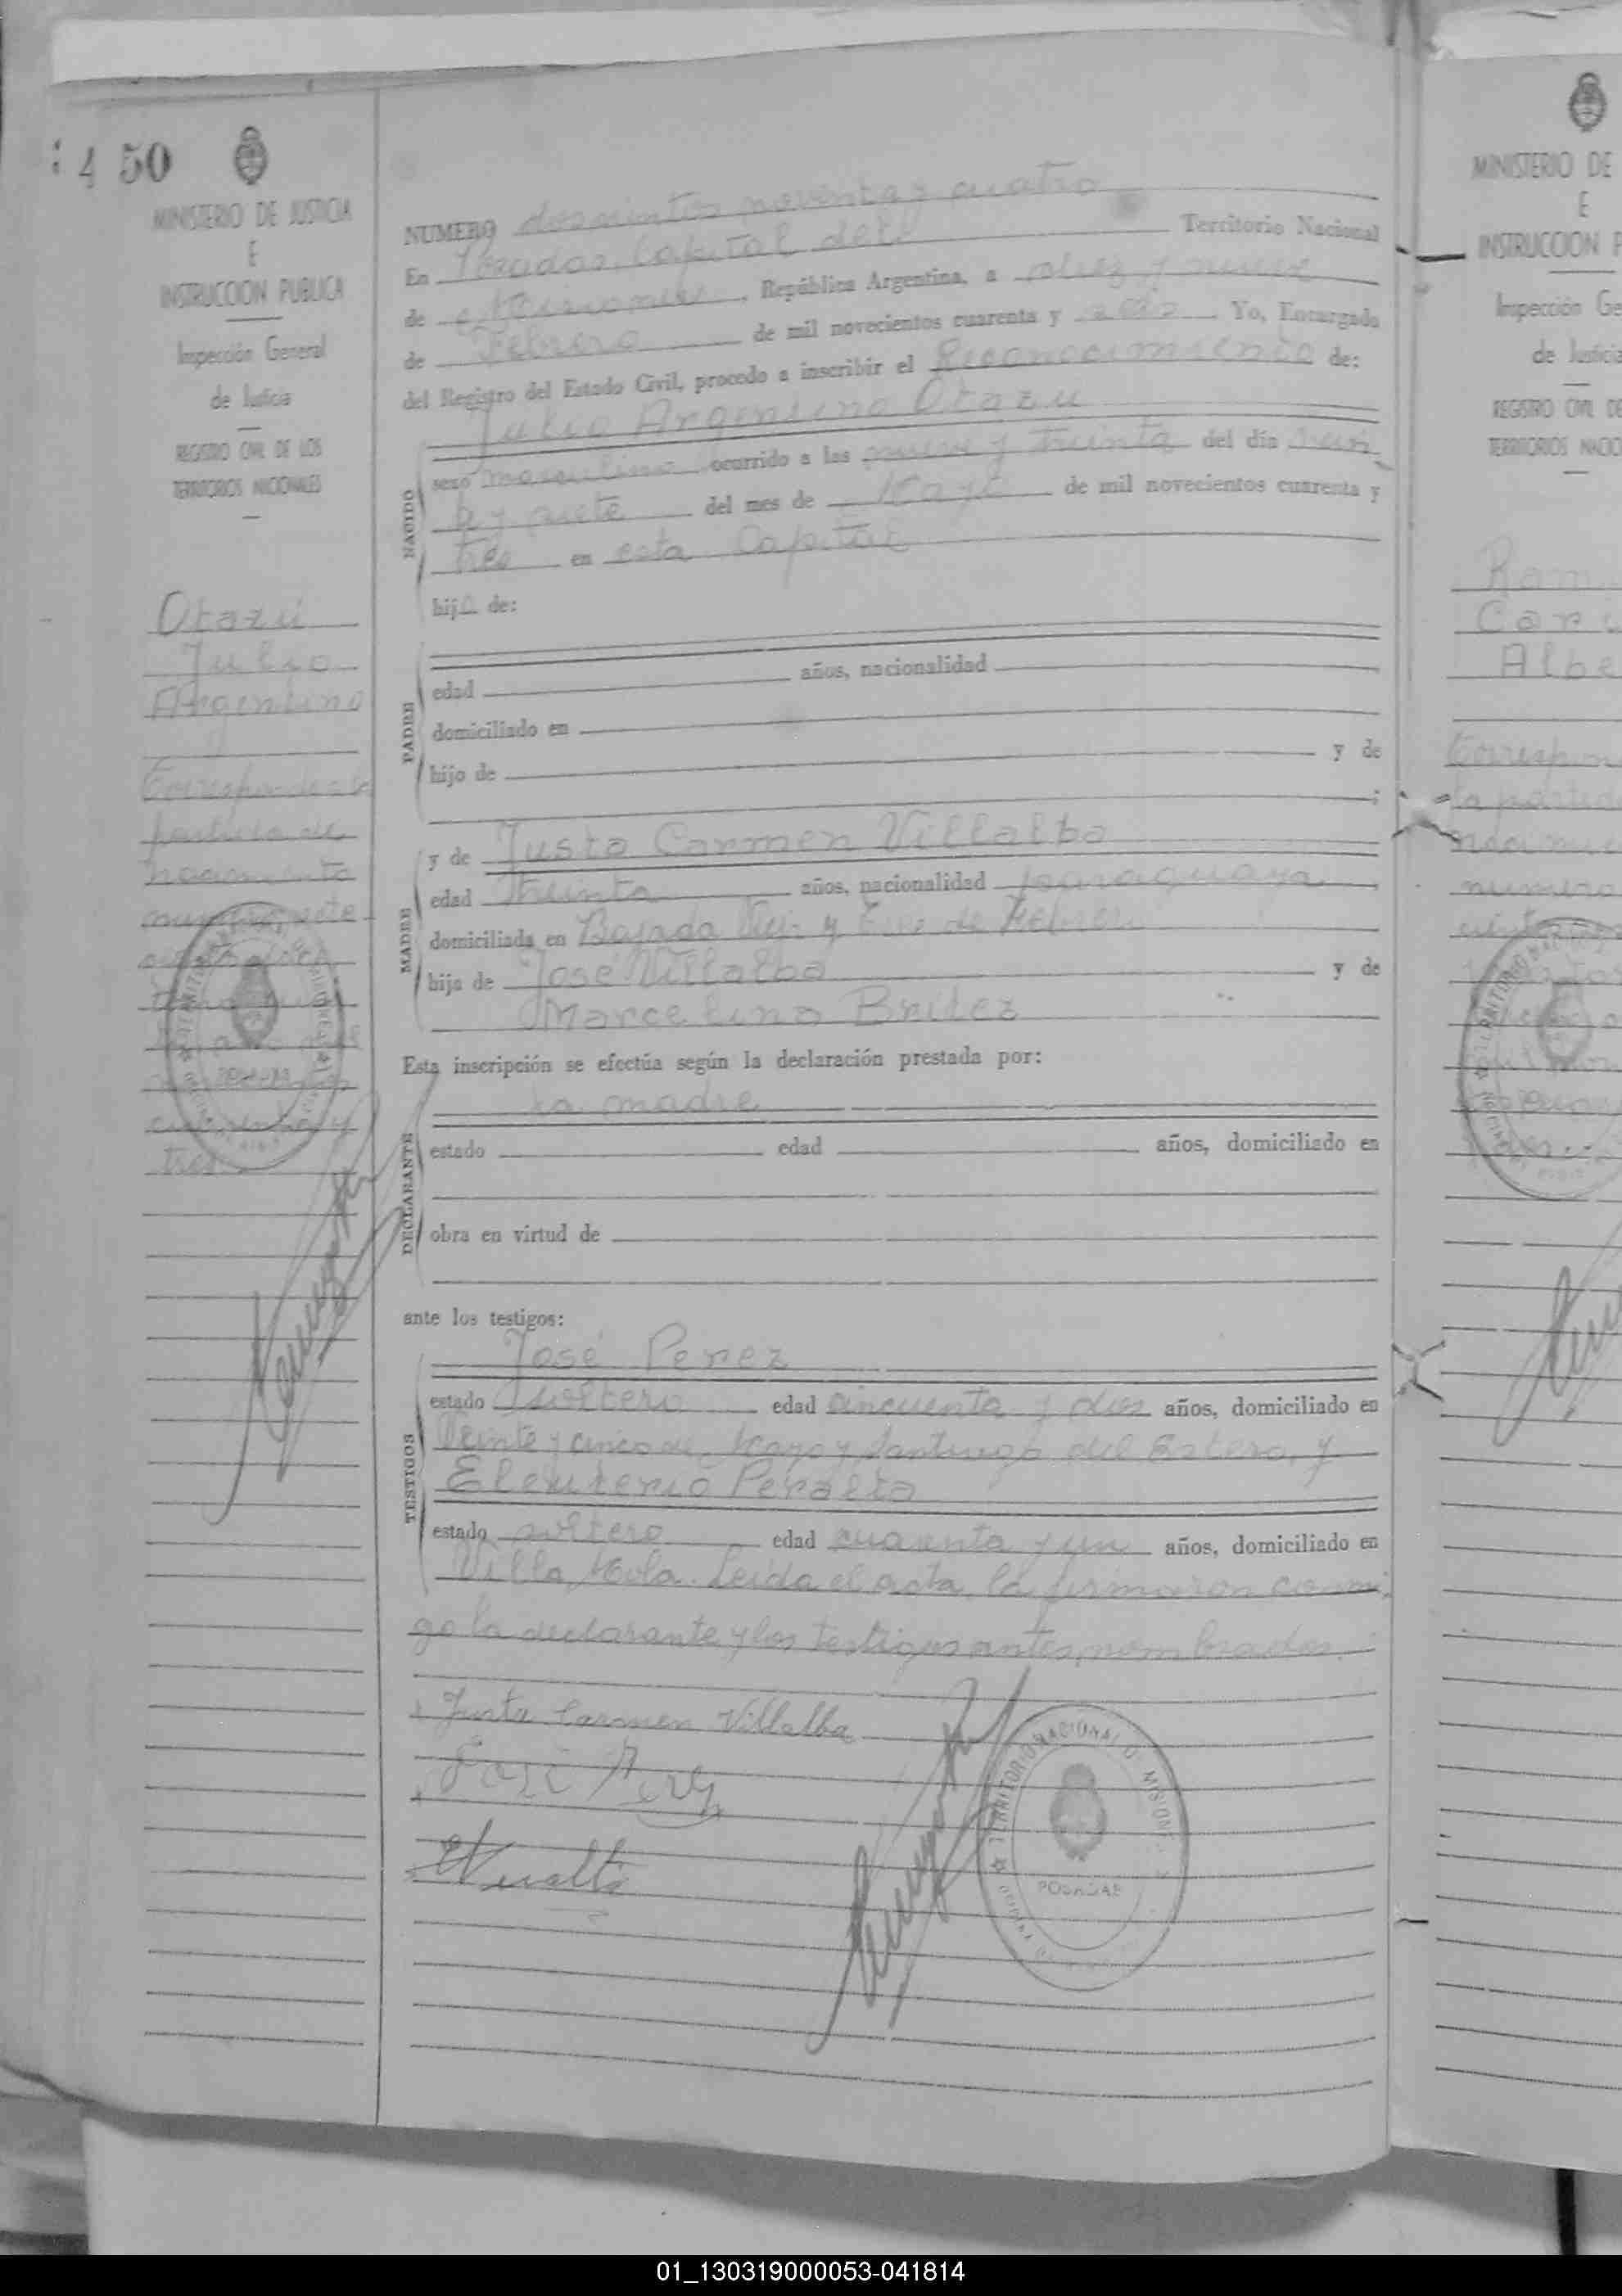 450
MINISTERIO DE JUSTICIA
E
INSTRUCCION PUBLICA
Inspección General
de Justicia
REGISTRO CIVIL DE LOS
TERRITORIOS NACIONALES
Otazú
Julio
Argentino
Corresponde a la
partida de
nacimiento
numero siete
cuarenta y
tres
NUMERO doscientos noventa y cuatro
En Posadas, Capital del Territorio Nacional
de Misiones, República Argentina, a diez y nueve
de Febrero de mil novecientos cuarenta y seis. Yo, Encargado
del Registro del Estado Civil, procedo a inscribir el Reconocimiento de:
Julio Argentino Otazú
NACIDO
sexo masculino ocurrido a las nueve y treinta del día vein
te y siete del mes de Mayo de mil novecientos cuarenta y
tres en esta Capital
hijo de:
PADRE
edad años, nacionalidad
domiciliado en
hijo de y de
;
MADRE
y de Justa Carmen Villalba
edad treinta años, nacionalidad paraguaya
domiciliada en Bajada Vieja y Tres de Febrero
hija de José Villalba y de
Marcelina Britez
Esta inscripción se efectúa según la declaración prestada por:
La madre
DECLARANTE
estado edad años, domiciliado en
obra en virtud de
ante los testigos:
José Perez
TESTIGOS
estado soltero edad cincuenta y dos años, domiciliado en
Veinte y cinco de Mayo y Santiago del Estero, y
Eleuterio Peralta
estado soltero edad cuarenta y un años, domiciliado en
Villa Mola. Leida el acta, la firmaron conmi
go la declarante y los testigos antes nombrados.
Justa Carmen Villalba
José Perez
EPeralta
TERRITORIO NACIONAL D MISIONES
POSADAS
MINISTERIO DE
E
INSTRUCCION P
Inspección Ge
de Justicia
REGISTRO CIVIL DE
TERRITORIOS NACIO
Ram
Albe
Correspon
la partid
nacimie
numero
01_130319000053-041814